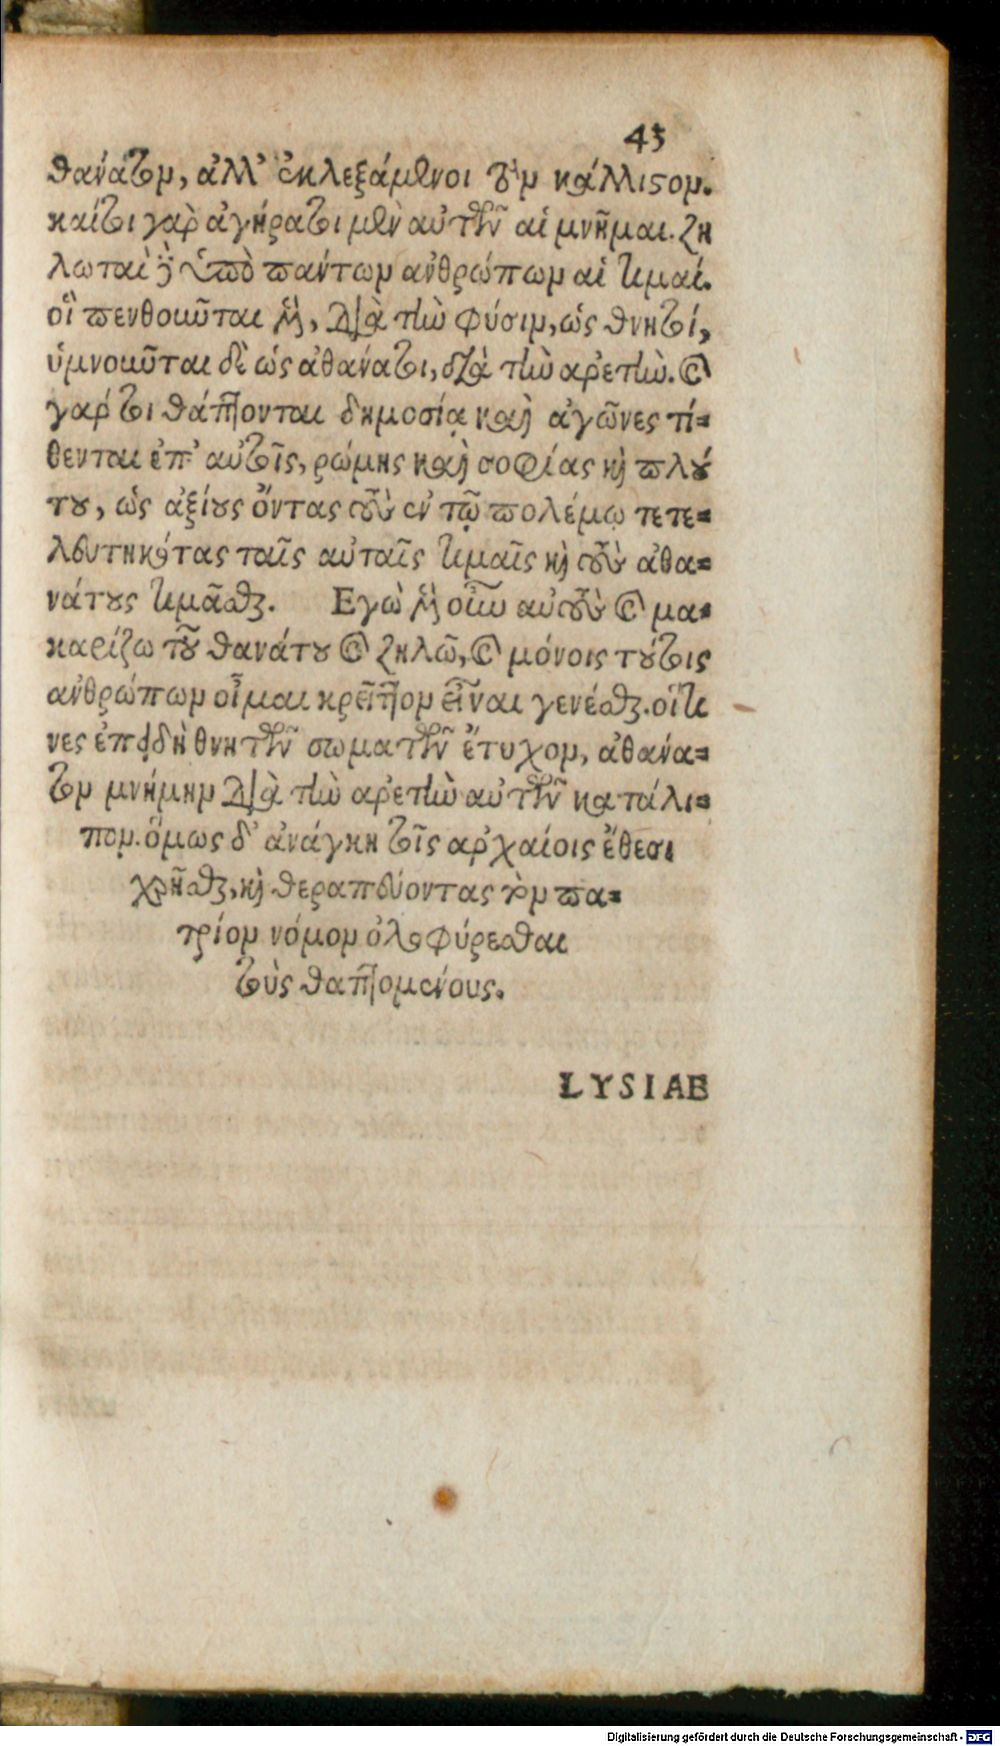 43
θανάτον, ἀλλ' ἐκλεξάμενοι τὸν κάλλιστον.
καίτοι γὰρ ἀγήρατοι μὲν αὐτῶν αἱ μνῆμαι. ζη
λωταὶ δὲ ὑπὸ πάντων ἀνθρώπων αἱ τιμαί.
οἳ πενθοῦνται μὲν, διὰ τὴν φύσιν, ὡς θνητοί,
ὑμνοῦνται δὲ ὡς ἀθάνατοι, διὰ τὴν ἀρετὴν. καὶ
γάρ τοι θάπτονται δημοσίᾳ καὶ ἀγῶνες τί=
θενται ἐπ' αὐτοῖς, ῥώμης καὶ σοφίας καὶ πλού
του, ὡς ἀξίους ὄντας τοὺς ἐν τῷ πολέμῳ τετε=
λευτηκότας ταῖς αὐταῖς τιμαῖς καὶ τοὺς ἀθα=
νάτους τιμᾶσθαι. Εγὼ μὲν οὖν αὐτοὺς καὶ μα=
καρίζω τοῦ θανάτου καὶ ζηλῶ, καὶ μόνοις τούτοις
ἀνθρώπων οἶμαι κρεῖττον εἶναι γενέσθαι. οἵτι
νες ἐπειδὴ θνητῶν σωμάτων ἔτυχον, ἀθάνα=
τον μνήμην διὰ τὴν ἀρετὴν αὐτῶν κατάλι=
πον. ὅμως δ' ἀνάγκη τοῖς ἀρχαίοις ἔθεσι
χρῆσθαι, καὶ θεραπεύοντας τὸν πα=
τρίον νόμον ὀλοφύρεσθαι
τοὺς θαπτομένους.
LYSIAE
Digitalisierung gefördert durch die Deutsche Forschungsgemeinschaft - DFG